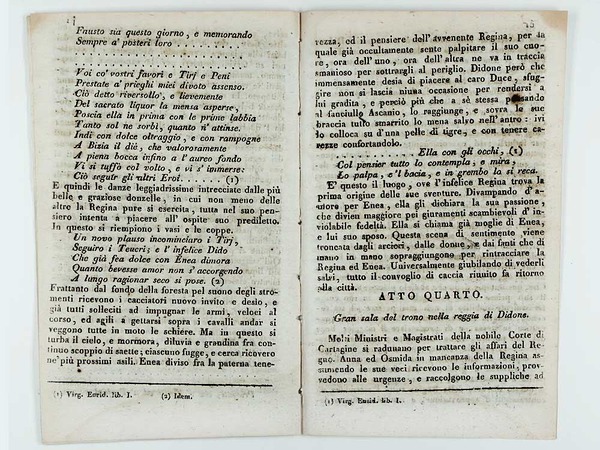 Fausto sia questo giorno, e memorando
Sempre a' posteri loro . . . . . . . . .
. . . . . . . . . . . . . . . . . . . .
. . . . . . . . . . . . . . . . . . . .
Voi co' vostri favori e Tirj e Peni
Prestate a' prieghi miei divoto assenso.
Ciò detto riversollo, e lievemente
Del sacrato liquor la mensa asperse,
Poscia ella in prima con le prime labbia
Tanto sol ne sorbì, quanto n' attinse.
Indi con dolce oltraggio, e con rampogne
A Bizia il diè, che valorosamente
A piena bocca infino a l'aureo fondo
Vi si tuffò col volto, e vi s' immerse:
Ciò seguir gl'altri Eroi . . . . . . (1)
E quindi le danze leggiadrissime intrecciate dalle più
belle e graziose donzelle, in cui non meno delle
altre la Regina pure si esercita, tutta nel suo pen-
siero intenta a piacere all' ospite suo prediletto.
In questo si riempiono i vasi e le coppe.
Un novo plauso incominciaro i Tirj,
Seguiro i Teucri; e l' infelice Dido
Che già fea dolce con Enea dimora
Quanto bevesse amor non s' accorgendo
A lungo ragionar seco si pose. (2)
Frattanto dal fondo della foresta pel suono degli stro-
menti ricevono i cacciatori nuovo invito e desìo, e
già tutti solleciti ad impugnar le armi, veloci al
corso, ed agili a gettarsi sopra i cavalli andar si
veggono tutte in moto le schiere. Ma in questo si
turba il cielo, e mormora, diluvia e grandina fra con-
tinuo scoppio di saette; ciascuno fugge, e cerca ricovero
ne' più prossimi asili. Enea diviso fra la paterna tene-
(1) Virg. Eneid. lib. I. (2) Idem.
rezza, ed il pensiere dell' avvenente Regina, per la
quale già occultamente sente palpitare il suo cuo-
re, ora dell' uno, ora dell' altra ne va in traccia
smanioso per sottrargli al periglio. Didone però che
immensamente desia di piacere al caro Duce, sfug-
gire non si lascia niuna occasione per rendersi a
lui gradita, e perciò più che a sè stessa pensando
al fanciullo Ascanio, lo raggiunge, e sovra le sue
braccia tutto smarrito lo mena salvo nell' antro: ivi
lo colloca su d'una pelle di tigre, e con tenere ca-
rezze confortandolo.
. . . . . . . . . . Ella con gli occhi, (1)
Col pensier tutto lo contempla, e mira,
Lo palpa, e 'l bacia, e in grembo la si reca.
E' questo il luogo, ove l'infelice Regina trova la
prima origine delle sue sventure. Divampando d' a-
more per Enea, ella gli dichiara la sua passione,
che divien maggiore pei giuramenti scambievoli d' in-
violabile fedeltà. Ella si chiama già moglie di Enea,
e lui suo sposo. Questa scena di sentimento viene
troncata dagli arcieri, dalle donne, e dai fanti che di
mano in mano sopraggiungono per rintracciare la
Regina ed Enea. Universalmente giubilando di vederli
salvi, tutto il convoglio di caccia riunito fa ritorno
alla città.
ATTO QUARTO.
Gran sala del trono nella reggia di Didone.
Molti Ministri e Magistrati della nobile Corte di
Cartagine si radunano per trattare gli affari del Re-
gno. Anna ed Osmida in mancanza della Regina as-
sumendo le sue veci ricevono le informazioni, prov-
vedono alle urgenze, e raccolgono le suppliche ad
(1) Virg. Eneid. lib. I.